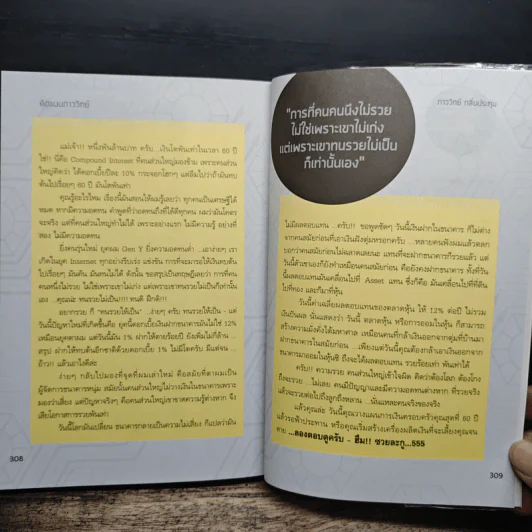 คิดแบบภาววิทย์
แม่เจ้า!! หนึ่งพันล้านบาท ครับ...เงินโตพันเท่าในเวลา 60 ปี
ใช่! นี่คือ Compound Interest ที่คนส่วนใหญ่มองข้าม เพราะคนส่วน
ใหญ่คิดว่า ได้ดอกเบี้ยปีละ 10% กระจอกโฮกๆ แต่ลืมไปว่าถ้ามันทบ
ต้นไปเรื่อยๆ 60 ปี มันโตพันเท่า
คุณรู้อะไรไหม เรื่องนี้มันสอนให้ผมรู้เลยว่า ทุกคนเป็นเศรษฐีได้
หมด หากมีความอดทน คำพูดที่ว่าอดทนถึงที่ได้ดีทุกคน ผมว่ามันโคตร
จะจริง แต่ที่คนส่วนใหญ่ทำไม่ได้ เพราะอย่างแรก ไม่มีความรู้ อย่างที่
สอง ไม่มีความอดทน
ยิ่งคนรุ่นใหม่ ยุคผม Gen Y ยิ่งความอดทนต่ำ ...เอาง่ายๆ เรา
เกิดในยุค Internet ทุกอย่างรีบเร่ง แข่งขัน การที่จะมารอให้เงินทบต้น
ไปเรื่อยๆ มันคัน มันทนไม่ได้ ดังนั้น ขอสรุปเป็นทฤษฎีเลยว่า การที่คน
คนหนึ่งไม่รวย ไม่ใช่เพราะเขาไม่เก่ง แต่เพราะเขาทนรวยไม่เป็นก็เท่านั้น
เอง ...คุณน่ะ ทนรวยไม่เป็น!!!! ทนดิ มีกดิ้!!!
อยากรวย ก็ "ทนรวยให้เป็น" ...ง่ายๆ ครับ ทนรวยให้เป็น - แต่
วันนี้ปัญหาใหม่ที่เกิดขึ้นคือ ยุคนี้ดอกเบี้ยเงินฝากธนาคารมันไม่ใช่ 12%
เหมือนยุคตาผม แต่วันนี้มัน 1% ฝากให้ตายร้อยปี ยังเพิ่มไม่กี่ล้าน ...
สรุป ฝากให้ทบต้นอีกชาติด้วยดอกเบี้ย 1% ไม่มีใครรับ มีแต่จน...
อ้าว!! แล้วเอาไงดีล่ะ
ง่ายๆ กลับไปมองที่จุดที่ผมเล่าใหม่ คือสมัยที่ตาผมเป็น
ผู้จัดการธนาคารหนุ่ม สมัยนั้นคนส่วนใหญ่ไม่วางเงินในธนาคารเพราะ
มองว่าเสี่ยง แต่ปัญหาจริงๆ คือคนส่วนใหญ่เขาขาดความรู้ต่างหาก จึง
เสียโอกาสการรวยพันเท่า!
วันนี้โลกมันเปลี่ยน ธนาคารกลายเป็นความไม่เสี่ยง ก็แปลว่ามัน
308
ภาววิทย์ กลิ่นประทุม
"การที่คนคนนึงไม่รวย
ไม่ใช่เพราะเขาไม่เก่ง
แต่เพราะเขาทนรวยไม่เป็น
ก็เท่านั้นเอง"
ไม่มีผลตอบแทน ...ครับ!! ขอพูดชัดๆ วันนี้เงินฝากในธนาคาร ก็ไม่ต่าง
จากคนสมัยก่อนที่เอาเงินฝังตุ่มหรอกครับ ...หลายคนฟังผมแล้วตลก
บอกว่าคนสมัยก่อนไม่ฉลาดเลยเนอะ แทนที่จะฝากธนาคารก็รวยแล้ว แต่
วันนี้ตัวเราเองก็ยังทำเหมือนคนสมัยก่อน คือยังคงฝากธนาคาร ทั้งที่วัน
นี้ผลตอบแทนมันเคลื่อนไปที่ Asset แทน ซึ่งก็คือ มันเคลื่อนไปที่ที่ดิน
ไปที่ทอง และก็มาที่หุ้น
วันนี้ค่าเฉลี่ยผลตอบแทนของตลาดหุ้น ให้ 12% ต่อปี ไม่รวม
เงินปันผล นั่นแสดงว่า วันนี้ ตลาดหุ้น หรือการออมในหุ้น ก็สามารถ
สร้างความมั่งคั่งได้มหาศาล เหมือนคนที่กล้าเงินออกจากตุ่มที่บ้านมา
ฝากธนาคารในสมัยก่อน ...เพียงแต่วันนี้คุณต้องกล้าเอาเงินออกจาก
ธนาคารมาออมในหุ้นซิ ถึงจะได้ผลตอบแทน รวยร้อยเท่า พันเท่าได้
ครับ!! ความรวย คนส่วนใหญ่เข้าใจผิด คิดว่าต้องโลภ ต้องโกง
ถึงจะรวย ...ไม่เลย คนมีปัญญาและมีความอดทนต่างหาก ที่รวยจริง
แล้วจะรวยต่อไปถึงลูกถึงหลาน ...นั่นแหละคนจริงของจริง
แล้วคุณล่ะ วันนี้คุณวางแผนการเงินครอบครัวคุณสุดที่ 60 ปี
แล้วรอฟ้าประทาน หรือคุณเริ่มสร้างเครื่องผลิตเงินที่จะเลี้ยงคุณจน
ตาย ...ลองตอบดูครับ - ฮึ่ม!! ซวยละกู...555
309